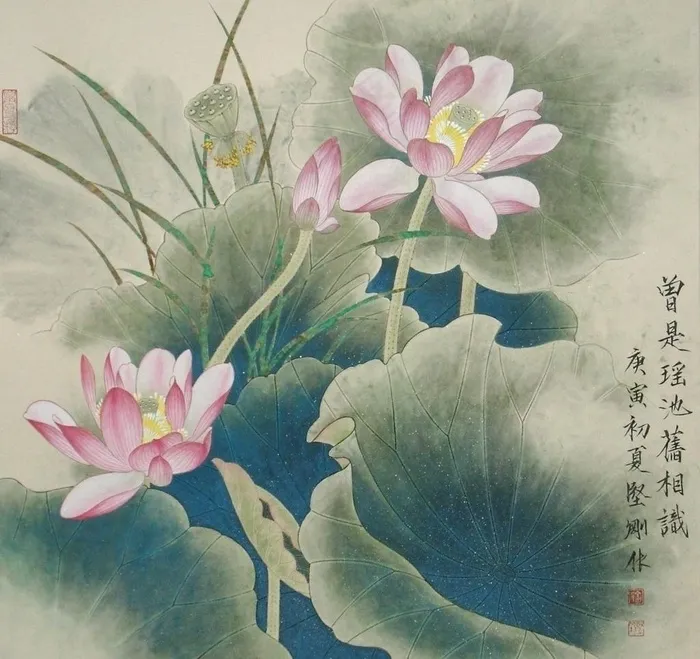 曽是瑶池舊相識
庚寅初夏堅剛作